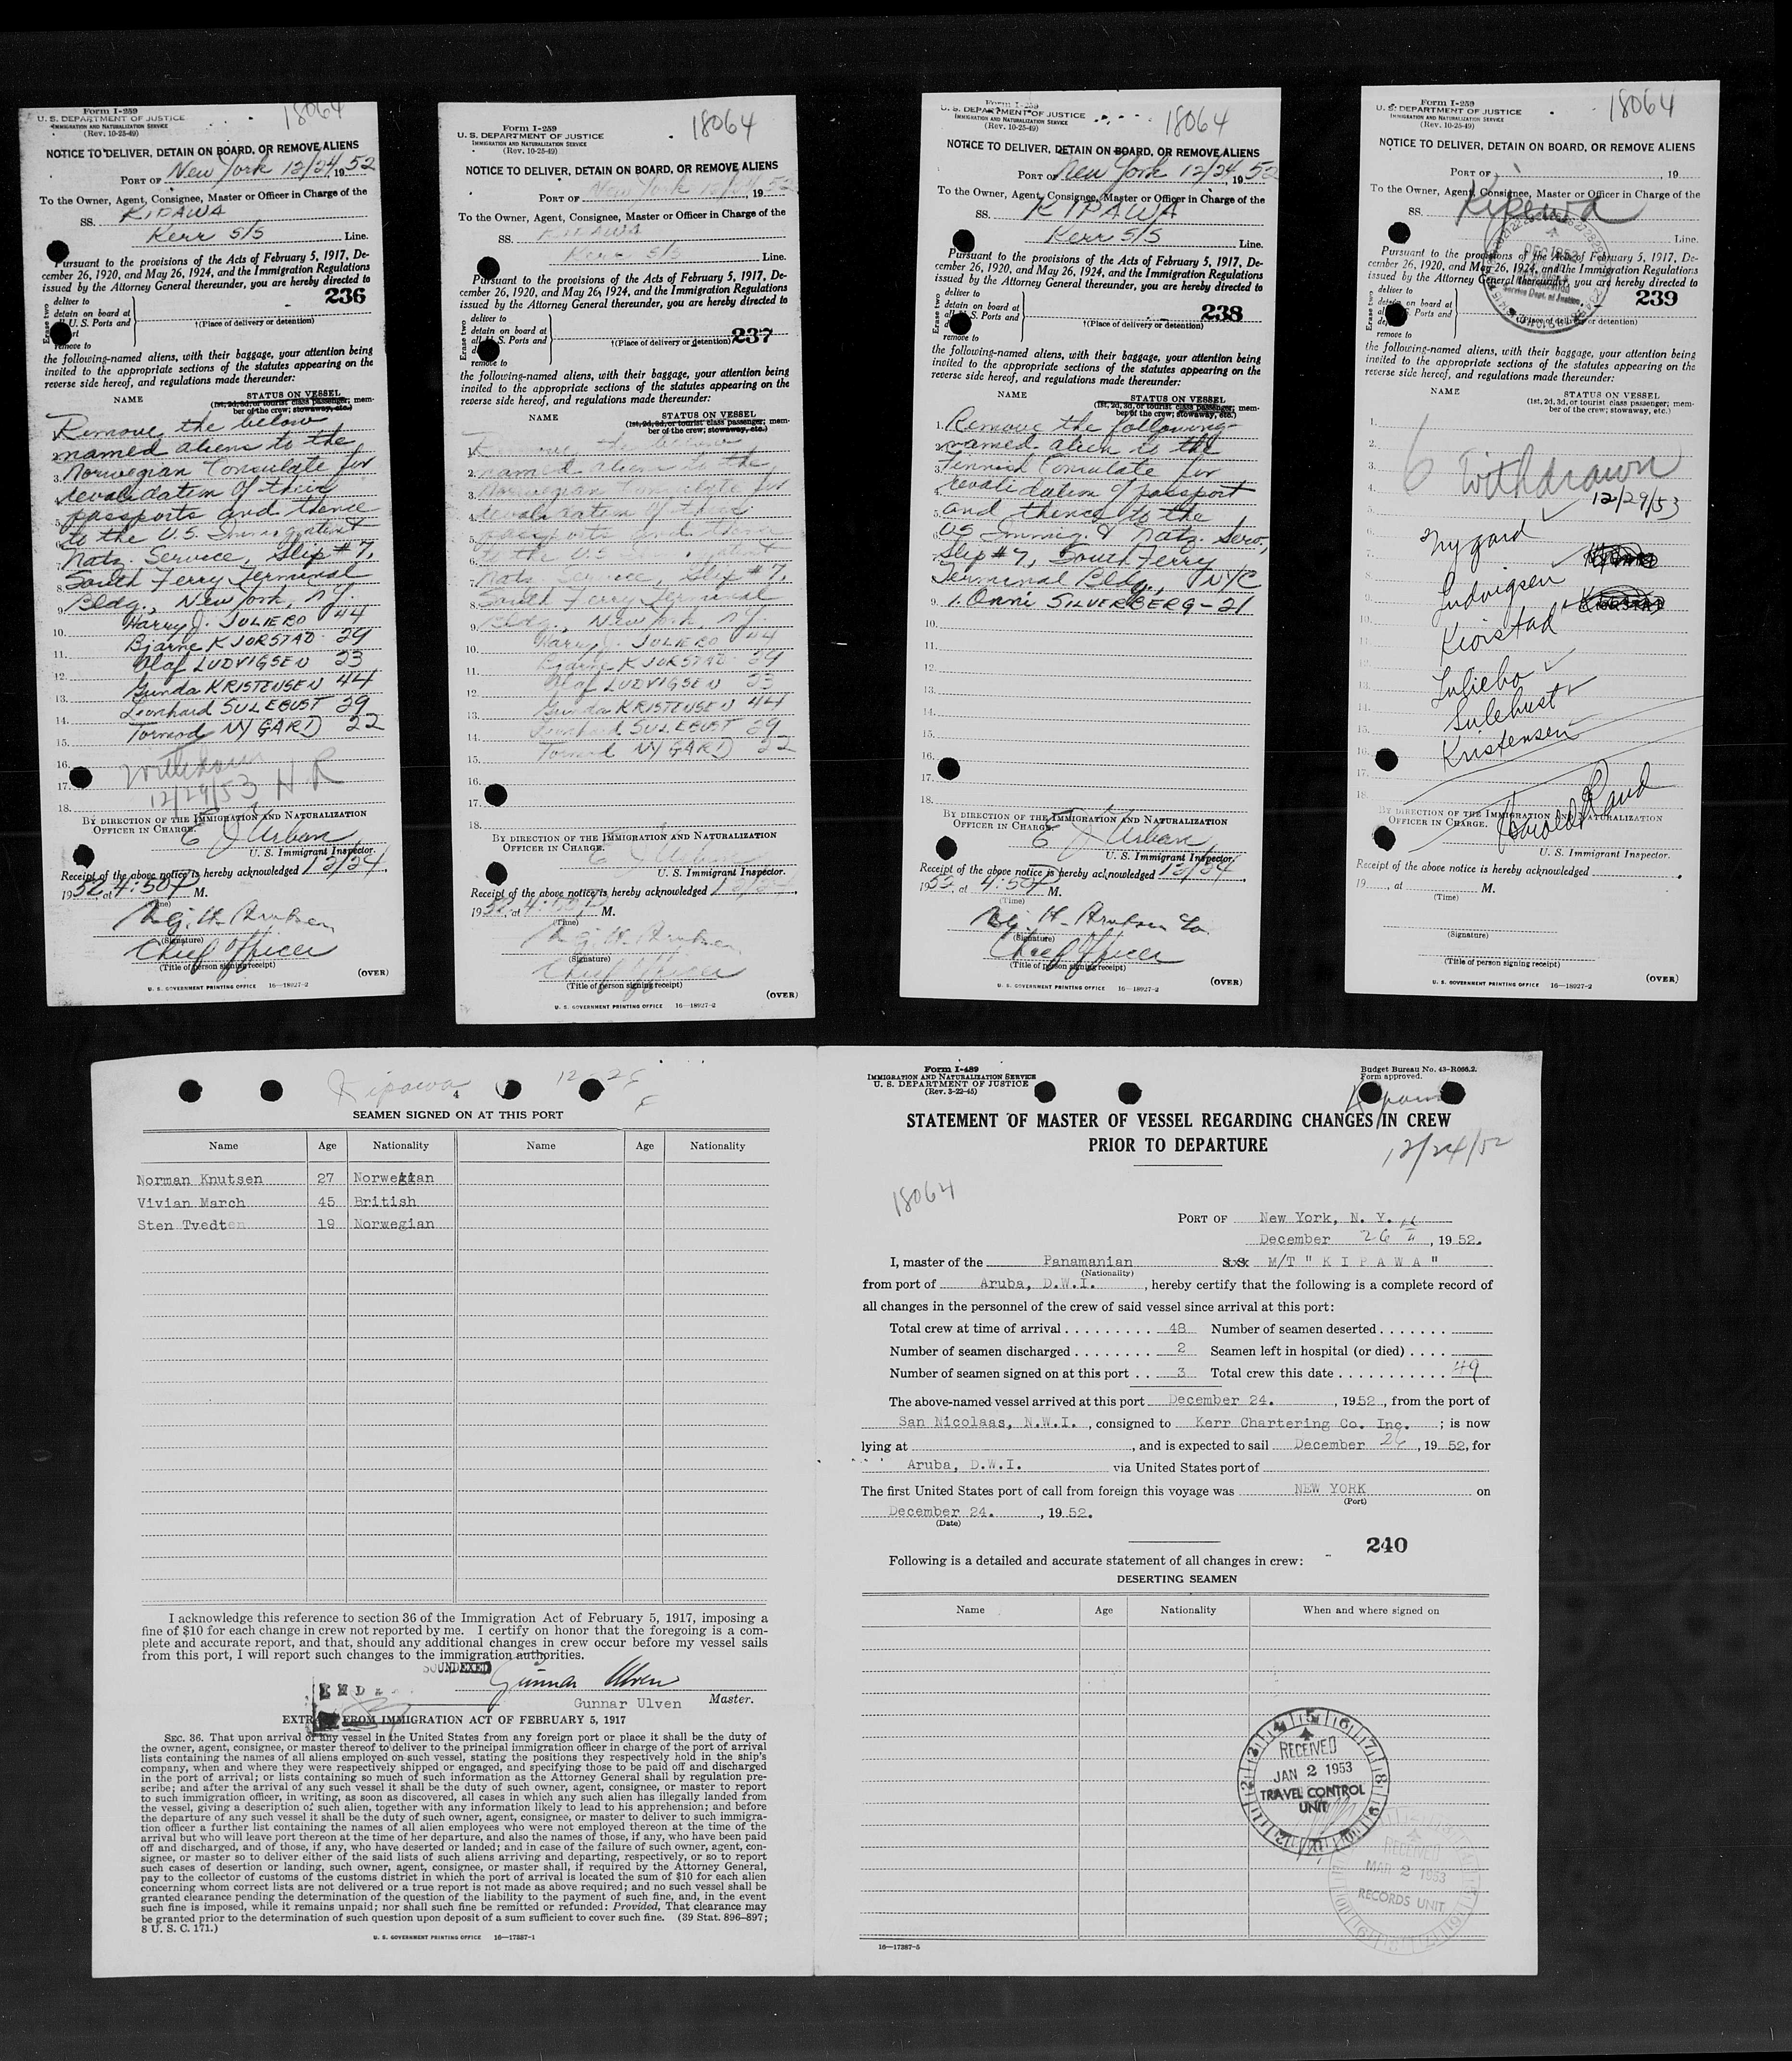 Form I-259
U. S. DEPARTMENT OF JUSTICE
IMMIGRATION AND NATURALIZATION SERVICE
(Rev. 10-25-49)
18064
NOTICE TO DELIVER, DETAIN ON BOARD, OR REMOVE ALIENS
PORT OF New York 12/24, 1952
To the Owner, Agent, Consignee, Master or Officer in Charge of the
SS. KIPAWA
Kerr S/S Line.
Pursuant to the provisions of the Acts of February 5, 1917, De-
cember 26, 1920, and May 26, 1924, and the Immigration Regulations
issued by the Attorney General thereunder, you are hereby directed to
236
Erase two
deliver to
detain on board at
U. S. Ports and
remove to
†(Place of delivery or detention)
the following-named aliens, with their baggage, your attention being
invited to the appropriate sections of the statutes appearing on the
reverse side hereof, and regulations made thereunder:
NAME
STATUS ON VESSEL
(1st, 2d, 3d, or tourist class passenger; mem-
ber of the crew; stowaway, etc.)
Remove the below
2. named aliens to the
3. Norwegian Consulate for
revalidation of their
5. passports and thence
to the U.S. Immig. &
7. Natz. Service, Slip #7,
8. South Ferry Terminal
9. Bldg., New York, N.Y.
10. Harry J. JULIEBO 44
11. Bjarne KJORSTAD 29
12. Olaf LUDVIGSEN 23
13. Gunda KRISTENSEN 44
14. Leonhard SULEBUST 29
15. Tormod NYGARD 22
16. Withdrawn
17. 12/29/53 H R
18.
BY DIRECTION OF THE IMMIGRATION AND NATURALIZATION
OFFICER IN CHARGE.
E J Urban
U. S. Immigrant Inspector.
Receipt of the above notice is hereby acknowledged 12/24
1952, at 4:50 P M.
(Time)
(Signature)
Chief Officer
(Title of person signing receipt)
(OVER)
U. S. GOVERNMENT PRINTING OFFICE 16—18927-2
Form I-259
U. S. DEPARTMENT OF JUSTICE
IMMIGRATION AND NATURALIZATION SERVICE
(Rev. 10-25-49)
18064
NOTICE TO DELIVER, DETAIN ON BOARD, OR REMOVE ALIENS
PORT OF New York 12/24, 1952
To the Owner, Agent, Consignee, Master or Officer in Charge of the
SS. KIPAWA
Kerr S/S Line.
Pursuant to the provisions of the Acts of February 5, 1917, De-
cember 26, 1920, and May 26, 1924, and the Immigration Regulations
issued by the Attorney General thereunder, you are hereby directed to
Erase two
deliver to
detain on board at
all U. S. Ports and
remove to
†(Place of delivery or detention)
237
the following-named aliens, with their baggage, your attention being
invited to the appropriate sections of the statutes appearing on the
reverse side hereof, and regulations made thereunder:
NAME
STATUS ON VESSEL
(1st, 2d, 3d, or tourist class passenger; mem-
ber of the crew; stowaway, etc.)
1. Remove the below
2. named aliens to the
3. Norwegian Consulate for
4. revalidation of their
5. passports and thence
6. to the U.S.
7. Natz. Service, Slip #7,
8. South Ferry Terminal
9. Bldg., New York, N.Y.
10. Harry J. JULIEBO 44
11. Bjarne KJORSTAD 29
12. Olaf LUDVIGSEN 23
13. Gunda KRISTENSEN 44
14. Leonhard SULEBUST 29
15. Tormod NYGARD 22
16.
17.
18.
BY DIRECTION OF THE IMMIGRATION AND NATURALIZATION
OFFICER IN CHARGE.
E J Urban
U. S. Immigrant Inspector.
Receipt of the above notice is hereby acknowledged 12/24
1952, at 4:50 P M.
(Time)
(Signature)
Chief Officer
(Title of person signing receipt)
(OVER)
U. S. GOVERNMENT PRINTING OFFICE 16—18927-2
Form I-259
U. S. DEPARTMENT OF JUSTICE
IMMIGRATION AND NATURALIZATION SERVICE
(Rev. 10-25-49)
18064
NOTICE TO DELIVER, DETAIN ON BOARD, OR REMOVE ALIENS
PORT OF New York 12/24, 1952
To the Owner, Agent, Consignee, Master or Officer in Charge of the
SS. KIPAWA
Kerr S/S Line.
Pursuant to the provisions of the Acts of February 5, 1917, De-
cember 26, 1920, and May 26, 1924, and the Immigration Regulations
issued by the Attorney General thereunder, you are hereby directed to
Erase two
deliver to
detain on board at
all U. S. Ports and
remove to
238
†(Place of delivery or detention)
the following-named aliens, with their baggage, your attention being
invited to the appropriate sections of the statutes appearing on the
reverse side hereof, and regulations made thereunder:
NAME
STATUS ON VESSEL
(1st, 2d, 3d, or tourist class passenger; mem-
ber of the crew; stowaway, etc.)
1. Remove the following-
2. named alien to the
3. Finnish Consulate for
4. revalidation of passport
5. and thence to the
6. US Immig. & Natz. Serv.,
7. Slip #7, South Ferry
8. Terminal Bldg., NYC
9. 1. Onni SILVERBERG - 21
10.
11.
12.
13.
14.
15.
16.
17.
18.
BY DIRECTION OF THE IMMIGRATION AND NATURALIZATION
OFFICER IN CHARGE.
E J Urban
U. S. Immigrant Inspector.
Receipt of the above notice is hereby acknowledged 12/24
1952, at 4:50 P M.
(Time)
(Signature)
Chief Officer
(Title of person signing receipt)
(OVER)
U. S. GOVERNMENT PRINTING OFFICE 16—18927-2
Form I-259
U. S. DEPARTMENT OF JUSTICE
IMMIGRATION AND NATURALIZATION SERVICE
(Rev. 10-25-49)
18064
NOTICE TO DELIVER, DETAIN ON BOARD, OR REMOVE ALIENS
PORT OF , 19
To the Owner, Agent, Consignee, Master or Officer in Charge of the
SS. Kipawa
Line.
Pursuant to the provisions of the Acts of February 5, 1917, De-
cember 26, 1920, and May 26, 1924, and the Immigration Regulations
issued by the Attorney General thereunder, you are hereby directed to
Service Dept. of Justice
Erase two
deliver to
detain on board at
all U. S. Ports and
remove to
239
†(Place of delivery or detention)
the following-named aliens, with their baggage, your attention being
invited to the appropriate sections of the statutes appearing on the
reverse side hereof, and regulations made thereunder:
NAME
STATUS ON VESSEL
(1st, 2d, 3d, or tourist class passenger; mem-
ber of the crew; stowaway, etc.)
1.
2.
3. 6 Withdrawn
4. 12/29/53
5.
6. Nygard
7.
8. Ludvigsen
9.
10. Kjorstad
11.
12.
13. Juliebo
14. Sulebust
15.
16. Kristensen
17.
18.
Harold Rand
BY DIRECTION OF THE IMMIGRATION AND NATURALIZATION
OFFICER IN CHARGE.
U. S. Immigrant Inspector.
Receipt of the above notice is hereby acknowledged
19 , at M.
(Time)
(Signature)
(Title of person signing receipt)
(OVER)
U. S. GOVERNMENT PRINTING OFFICE 16—18927-2
Kipawa 12-26
4
SEAMEN SIGNED ON AT THIS PORT
Name Age Nationality Name Age Nationality
Norman Knutsen 27 Norwegian
Vivian March 45 British
Sten Tvedten 19 Norwegian
I acknowledge this reference to section 36 of the Immigration Act of February 5, 1917, imposing a
fine of $10 for each change in crew not reported by me. I certify on honor that the foregoing is a com-
plete and accurate report, and that, should any additional changes in crew occur before my vessel sails
from this port, I will report such changes to the immigration authorities.
SOUNDEXED
Gunnar Ulven
Gunnar Ulven Master.
EXTRACT FROM IMMIGRATION ACT OF FEBRUARY 5, 1917
SEC. 36. That upon arrival of any vessel in the United States from any foreign port or place it shall be the duty of
the owner, agent, consignee, or master thereof to deliver to the principal immigration officer in charge of the port of arrival
lists containing the names of all aliens employed on such vessel, stating the positions they respectively hold in the ship's
company, when and where they were respectively shipped or engaged, and specifying those to be paid off and discharged
in the port of arrival; or lists containing so much of such information as the Attorney General shall by regulation pre-
scribe; and after the arrival of any such vessel it shall be the duty of such owner, agent, consignee, or master to report
to such immigration officer, in writing, as soon as discovered, all cases in which any such alien has illegally landed from
the vessel, giving a description of such alien, together with any information likely to lead to his apprehension; and before
the departure of any such vessel it shall be the duty of such owner, agent, consignee, or master to deliver to such immigra-
tion officer a further list containing the names of all alien employees who were not employed thereon at the time of the
arrival but who will leave port thereon at the time of her departure, and also the names of those, if any, who have been paid
off and discharged, and of those, if any, who have deserted or landed; and in case of the failure of such owner, agent, con-
signee, or master so to deliver either of the said lists of such aliens arriving and departing, respectively, or so to report
such cases of desertion or landing, such owner, agent, consignee, or master shall, if required by the Attorney General,
pay to the collector of customs of the customs district in which the port of arrival is located the sum of $10 for each alien
concerning whom correct lists are not delivered or a true report is not made as above required; and no such vessel shall be
granted clearance pending the determination of the question of the liability to the payment of such fine, and, in the event
such fine is imposed, while it remains unpaid; nor shall such fine be remitted or refunded: Provided, That clearance may
be granted prior to the determination of such question upon deposit of a sum sufficient to cover such fine. (39 Stat. 896-897;
8 U. S. C. 171.)
U. S. GOVERNMENT PRINTING OFFICE 16—17387-1
Form I-489
IMMIGRATION AND NATURALIZATION SERVICE
U. S. DEPARTMENT OF JUSTICE
(Rev. 3-22-45)
Budget Bureau No. 43-R066.2.
Form approved.
Kipawa
STATEMENT OF MASTER OF VESSEL REGARDING CHANGES IN CREW
PRIOR TO DEPARTURE
12/24/52
18064
PORT OF New York, N. Y.
December 26th, 1952.
I, master of the Panamanian SxSx M/T " K I P A W A "
(Nationality)
from port of Aruba, D.W.I. , hereby certify that the following is a complete record of
all changes in the personnel of the crew of said vessel since arrival at this port:
Total crew at time of arrival 48 Number of seamen deserted
Number of seamen discharged 2 Seamen left in hospital (or died)
Number of seamen signed on at this port 3 Total crew this date 49
The above-named vessel arrived at this port December 24. , 1952 , from the port of
San Nicolaas, N.W.I. , consigned to Kerr Chartering Co. Inc. ; is now
lying at , and is expected to sail December 26 , 1952, for
Aruba, D.W.I. via United States port of
The first United States port of call from foreign this voyage was NEW YORK on
(Port)
December 24. , 1952.
(Date)
240
Following is a detailed and accurate statement of all changes in crew:
DESERTING SEAMEN
Name Age Nationality When and where signed on
RECEIVED
JAN 2 1953
TRAVEL CONTROL
UNIT
RECEIVED
MAR 2 1953
RECORDS UNIT
16—17387-5